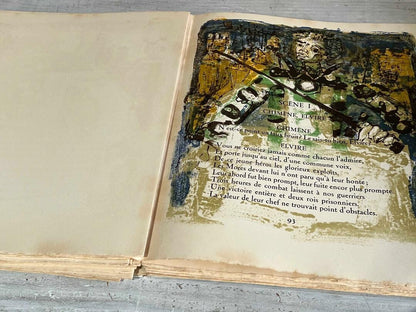 SCÈNE I
CHIMÈNE, ELVIRE
CHIMÈNE
ELVIRE
Vous ne croiriez jamais comme chacun l'admire,
Et porte jusqu'au ciel, d'une commune voix,
De ce jeune héros les glorieux exploits.
Les Mores devant lui n'ont paru qu'à leur honte ;
Leur abord fut bien prompt, leur fuite encor plus prompte
Trois heures de combat laissent à nos guerriers
Une victoire entière et deux rois prisonniers.
La valeur de leur chef ne trouvait point d'obstacles.
93